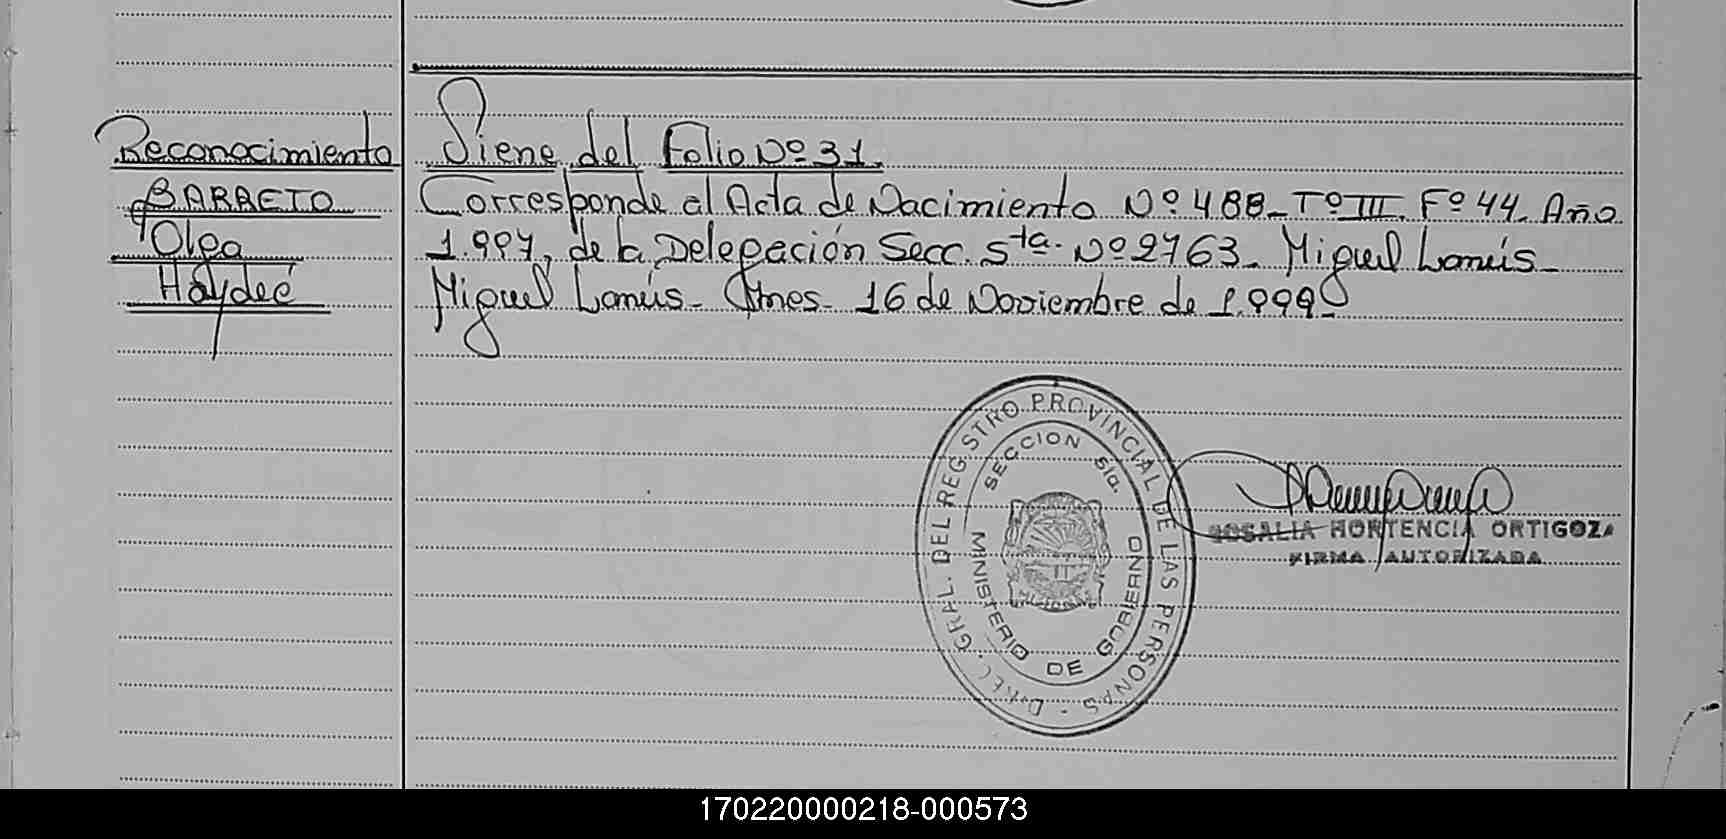 Reconocimiento
BARRETO
Olga
Haydeé
Viene del Folio Nº 31.
Corresponde al Acta de Nacimiento Nº 488_ Tº III. Fº 44. Año
1.997, de la Delegación Secc. 5ta. Nº 2763_ Miguel Lanús_
Miguel Lanús_ Mnes_ 16 de Noviembre de 1.999_
DIREC. GRAL. DEL REGISTRO PROVINCIAL DE LAS PERSONAS -
SECCION 5ta.
MINISTERIO DE GOBIERNO
ROSALIA HORTENCIA ORTIGOZA
FIRMA AUTORIZADA
170220000218-000573